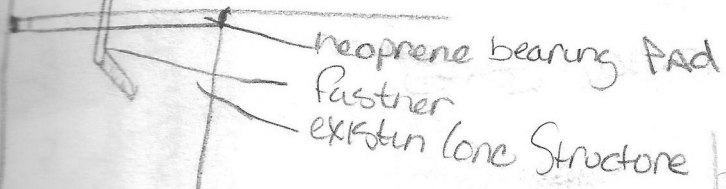 neoprene bearing PAd
fastner
existin Conc Structore